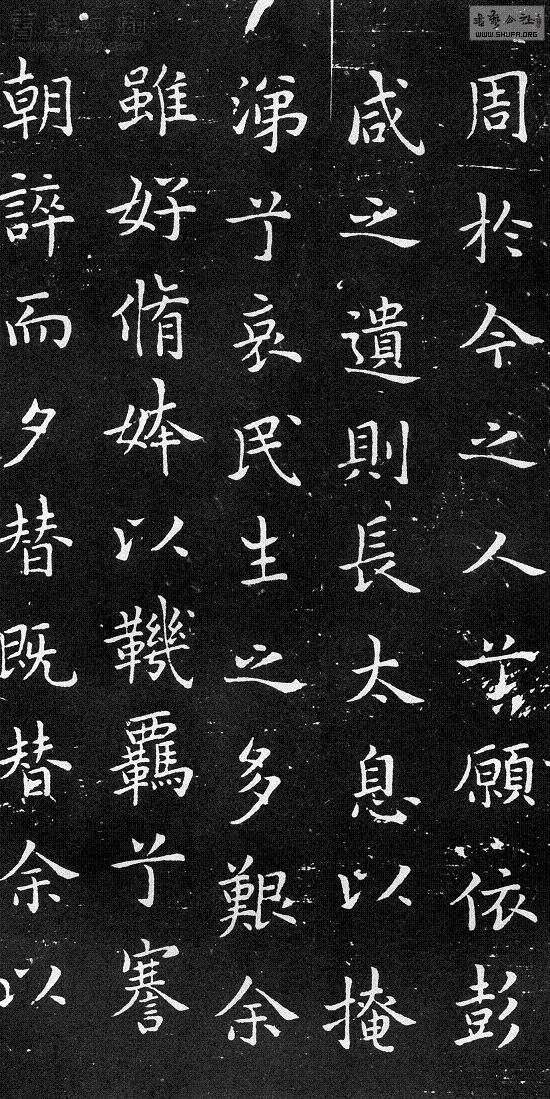 周於今之人兮願依彭
咸之遺則長太息以掩
涕兮哀民生之多艱余
雖好脩姱以鞿羈兮謇
朝誶而夕替既替余以
WWW.SHUFA.ORG